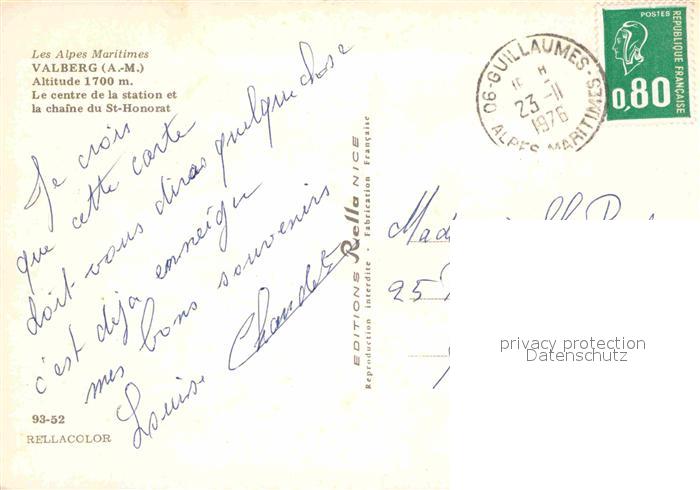 Les Alpes Maritimes
VALBERG (A.-M.)
Altitude 1700 m.
Le centre de la station et
la chaîne du St-Honorat
Je crois
que cette carte
doit vous diras quelque chose
c'est déja enneigée
mes bons souvenirs
Louise
93-52
RELLACOLOR
EDITIONS Rella NICE
Reproduction interdite - Fabrication Française
06-GUILLAUMES-
ALPES MARITIMES
H
23-11
1976
POSTES
REPUBLIQUE FRANÇAISE
0,80
25
privacy protection
Datenschutz